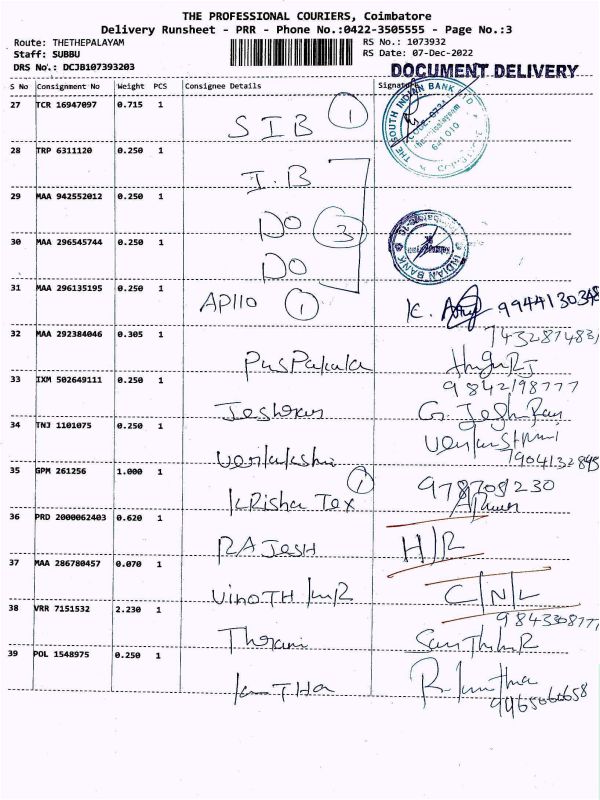 THE PROFESSIONAL COURIERS, Coimbatore
Delivery Runsheet - PRR - Phone No.:0422-3505555 - Page No.:3
Route: THETHEPALAYAM RS No.: 1073932
Staff: SUBBU RS Date: 07-Dec-2022
DRS No.: DCJB107393203 DOCUMENT DELIVERY
S No Consignment No Weight PCS Consignee Details Signature
27 TCR 16947097 0.715 1
SIB 1
THE SOUTH INDIAN BANK LTD
641 010
28 TRP 6311120 0.250 1
I.B
29 MAA 942552012 0.250 1
DO 3
INDIAN BANK
30 MAA 296545744 0.250 1
DO
31 MAA 296135195 0.250 1
APllO 1 K. 9944130348
32 MAA 292384046 0.305 1
7432874831
PusPakala
33 IXM 502649111 0.250 1
9842198777
Jeshran G. Jegh Raj
34 TNJ 1101075 0.250 1
7904132845
35 GPM 261256 1.000 1
KRisha Tex 1 978709230
36 PRD 2000062403 0.620 1
RAJesH H/R
37 MAA 286780457 0.070 1
VinoTH kmR C/N/L
38 VRR 7151532 2.230 1
9843308777
Tharani
39 POL 1548975 0.250 1
9965066658